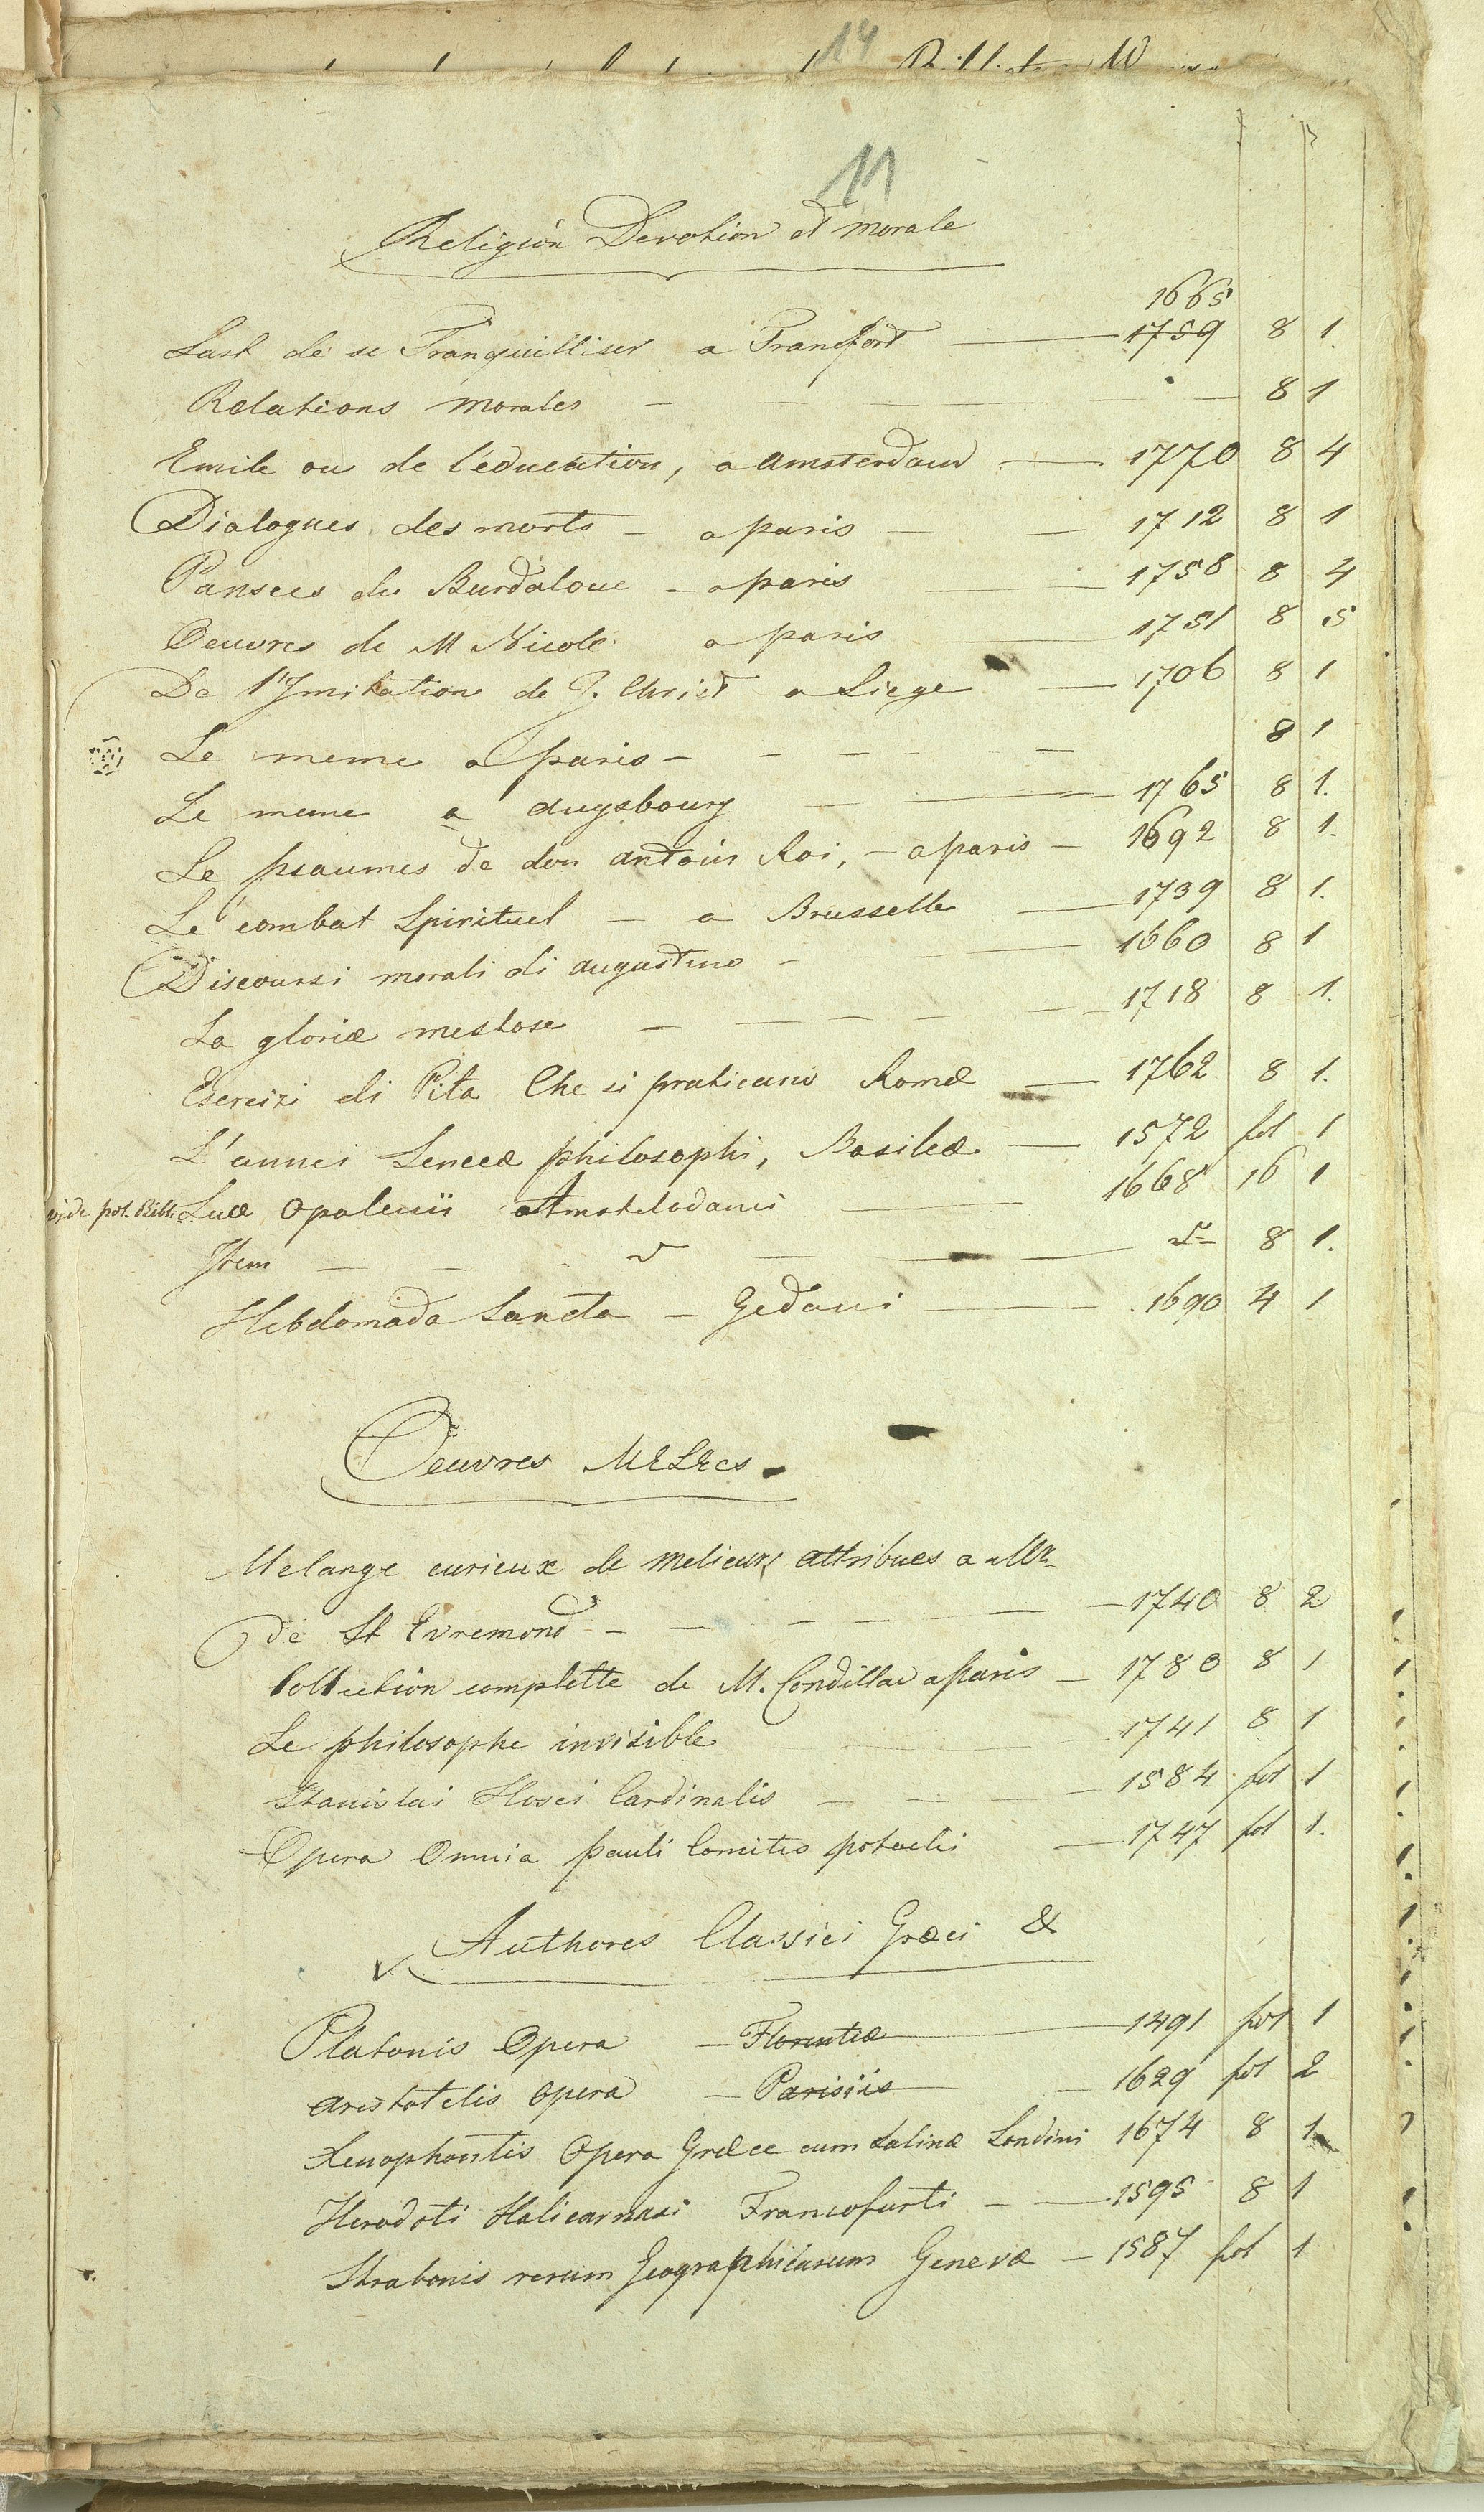 14
11
Religion Devotion et morale
1665
Lart de se Tranquilliser a Francfort — 1759 8 1.
Relations morales — — — 8 1
Emile ou de l'éducation, a amsterdam — 1770 8 4
Dialogues des morts — a paris — — 1712 8 1
Pansees du Burdaloue — a paris — 1758 8 4
Oeuvres de M Nicole a paris — 1751 8 5
De l'Jmitatione de J. Christ a Liege — 1706 8 1
Le meme a paris — — — — 8 1
Le meme a augsbourg — — 1765 8 1.
Le psaumes de don antoin Roi, — a paris — 1692 8 1.
Le combat Spirituel — a Brusselle — 1739 8 1.
Discoursi morali di augustino — — 1660 8 1
La gloriæ mestose — — — — 1718 8 1.
Esercizi di Pita Che si praticano Romæ — 1762 8 1.
L'annei Senecæ philosophi, Basileæ — 1572 fol 1
vide pol. Bibl: Lucæ Opalenii Amstelodami — 1668 16 1
Jtem — — — — 8 1.
Hebdomada Sancta — Gedani — 1690 4 1
Oeuvres MELEes
Melange curieux de melieurs attribues a Mr.
De St Evremond — — — — — 1740 8 2
Collection complette de M. Condillac a Paris — 1780 8 1
Le philosophe invisible — 1741 8 1
Stanislai Hosei Cardinalis — — — 1584 fol 1
Opera Omnia pauli Comitis potocki — 1747 fol 1.
Authores Classici Græci &
Platonis Opera — Florentiæ — 1491 fol 1
aristotelis opera — Parisiis — 1629 fol 2
Xenophontis Opera Græce cum Latinæ Londini 1674 8 1
Herodoti Halicarnasi Francofurti — — 1595 8 1
Strabonis rerum Geographicarum Genevæ — 1587 fol 1